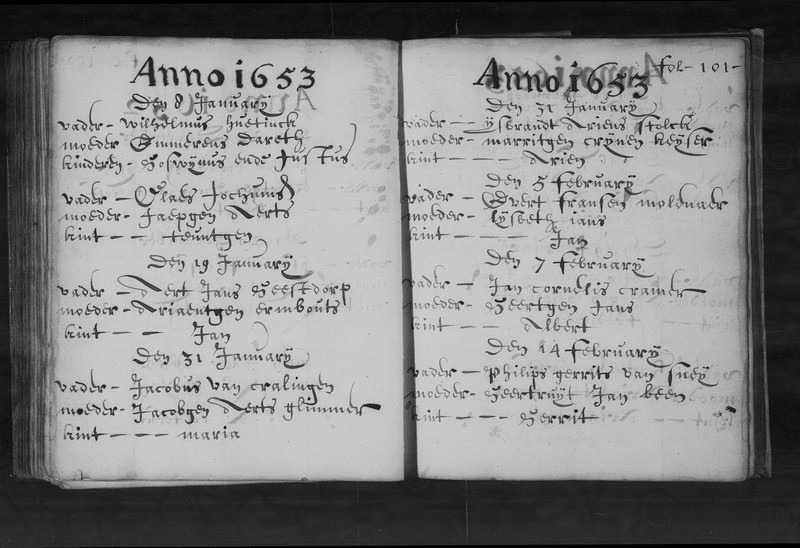 Anno 1653
Den 8 January
vader - Wilhelmus huetinck
moeder Emmerens Dareth
kinderen - Goswynus ende Justus
vader - Claes Jochums
moeder - Jaepgen Aerts
kint - - - teuntgen
Den 19 January
vader - Aert Jans Geestdorp
moeder - Ariaentgen ermbouts
kint - - - Jan
Den 31 January
vader - Jacobus van cralingen
moeder - Jacobgen Aerts glimmer
kint - - - maria
fol - 101 -
Anno 1653
Den 31 January
vader - ysbrandt Ariens Stolck
moeder - marritgen crynen keyser
kint - - - Arien
Den 5 February
vader - Evert Fransen molenaer
moeder - Lysbeth Jans
kint - - - Jan
Den 7 February
vader - Jan cornelis cramer
moeder - Geertgen Jans
kint - - - Albert
Den 14 February
vader - Philips gerrits van Sney
moeder - Geertruyt Jan been
kint - - - Gerrit